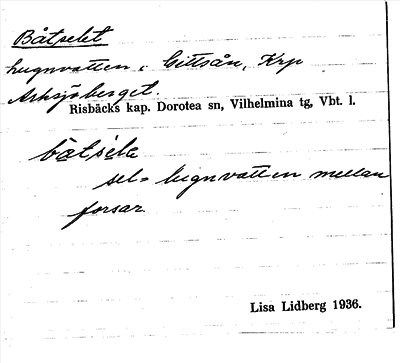 Båtselet
lugnvatten i Gittsån, Krp
Arksjöberget.
Risbäcks kap. Dorotea sn, Vilhelmina tg, Vbt. l.
båtsèle
sel = lugnvatten mellan
forsar
Lisa Lidberg 1936.